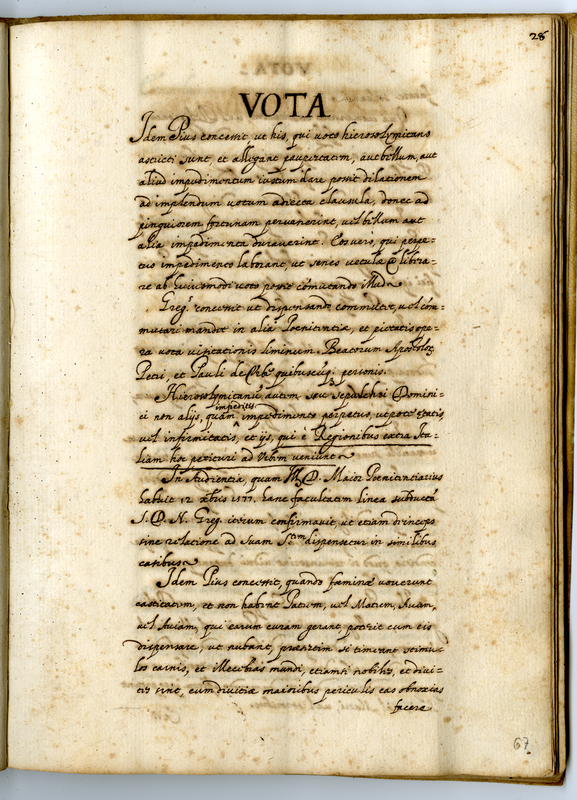 28
VOTA
Idem Pius concessit, ut his, qui voto hierosolymitano
astricti sunt, et allegant paupertatem, aut bellum, aut
aliud impedimentum iustum dare possit dilationem
ad implendum votum adiecta clausula, donec ad
pinguiorem fortunam pervenerint, vel bellum aut
alia impedimenta duraverint. Eos vero, qui perpe=
tuo impedimento laborant, ut senes vetulae libera=
re ab huiusmodi voto possit comutando illud
Greg.s concessit ut dispensando committat, vel com=
mutari mandet in alia Poenitentiae, et pietatis ope=
ra vota visitationis liminum Beatorum Apostoloz
Petri, et Pauli de Urbe quibuscuq; personis.
Hierosolymitanu autem seu Sepulchri Domini=
ci non alijs, quam impeditis impedimento perpetuo, utpote etatis,
vel infirmitatis, et ijs, qui e Regionibus extra Ita=
liam hoc petituri ad Urbem veniunt
In Audientia, quam M. D. Maior Poenitentiarius
habuit 12 xbris 1577. hanc facultatem linea subducta
S. D. N. Greg. iterum confirmavit, ut etiam
sine relatione ad Suam S.tem dispensetur in similibus
casibus
Idem Pius concessit, quando foeminae voverunt
castitatem, et non habent Patrem, vel Matrem, Avum,
vel Aviam, qui earum curam gerant, poterit cum eis
dispensare, ut nubant, praesertim si timerent stimu=
los carnis, et illecebras mundi, etiamsi nobiles, et divi=
tes sint, cum divitiae maioribus periculis eas obnoxias
facere
67